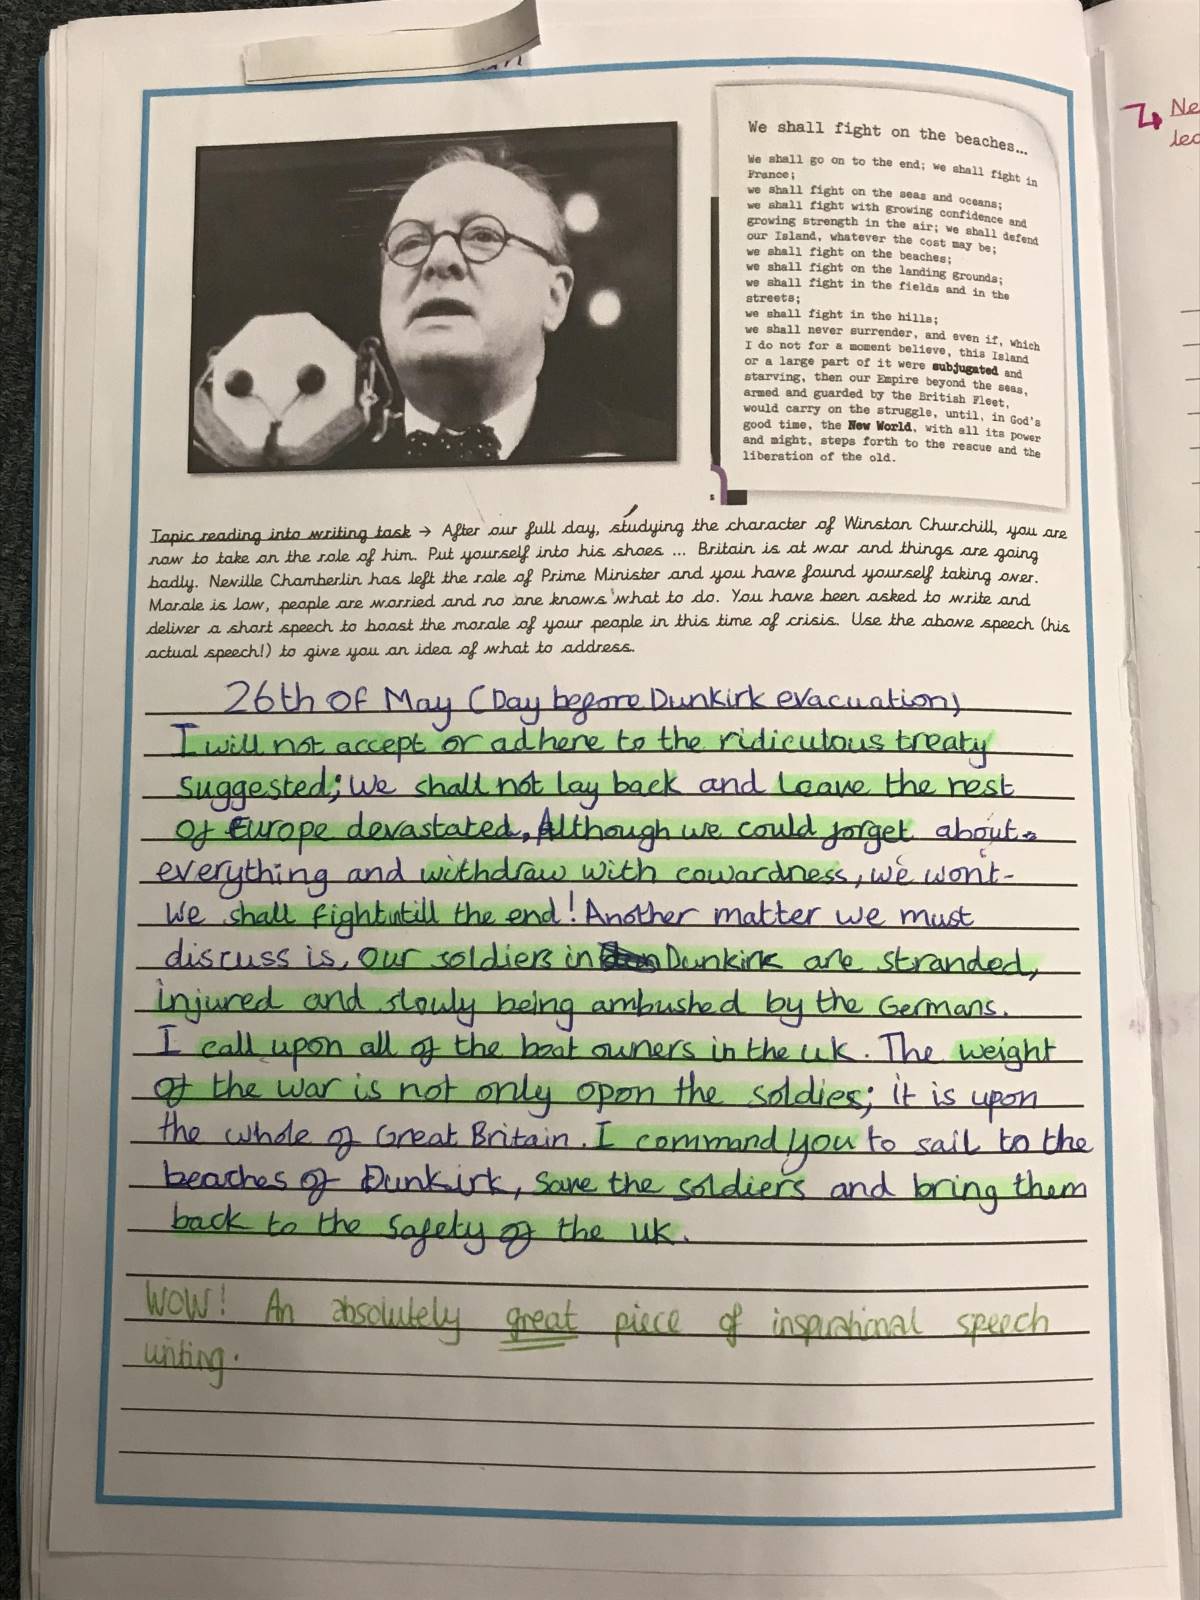 We shall fight on the beaches...
We shall go on to the end; we shall fight in
France;
we shall fight on the seas and oceans;
we shall fight with growing confidence and
growing strength in the air; we shall defend
our Island, whatever the cost may be;
we shall fight on the beaches;
we shall fight on the landing grounds;
we shall fight in the fields and in the
streets;
we shall fight in the hills;
we shall never surrender, and even if, which
I do not for a moment believe, this Island
or a large part of it were subjugated and
starving, then our Empire beyond the seas,
armed and guarded by the British Fleet,
would carry on the struggle, until, in God's
good time, the New World, with all its power
and might, steps forth to the rescue and the
liberation of the old.
s
Topic reading into writing task → After our full day, studying the character of Winston Churchill, you are
now to take on the role of him. Put yourself into his shoes ... Britain is at war and things are going
badly. Neville Chamberlin has left the role of Prime Minister and you have found yourself taking over.
Morale is low, people are worried and no one knows what to do. You have been asked to write and
deliver a short speech to boost the morale of your people in this time of crisis. Use the above speech (his
actual speech!) to give you an idea of what to address.
26th OF May (Day before Dunkirk evacuation)
I will not accept or adhere to the ridiculous treaty
suggested; We shall not lay back and leave the rest
of Europe devastated, Although we could forget about
everything and withdraw with cowardness, we won't-
We shall fight until the end! Another matter we must
discuss is, our soldiers in Dunkirk are stranded,
injured and slowly being ambushed by the Germans.
I call upon all of the boat owners in the UK. The weight
of the war is not only opon the soldies; it is upon
the whole of Great Britain. I command you to sail to the
beaches of Dunkirk, save the soldiers and bring them
back to the safety of the UK.
WOW! An absolutely great piece of inspirational speech
writing.
Ne
lec